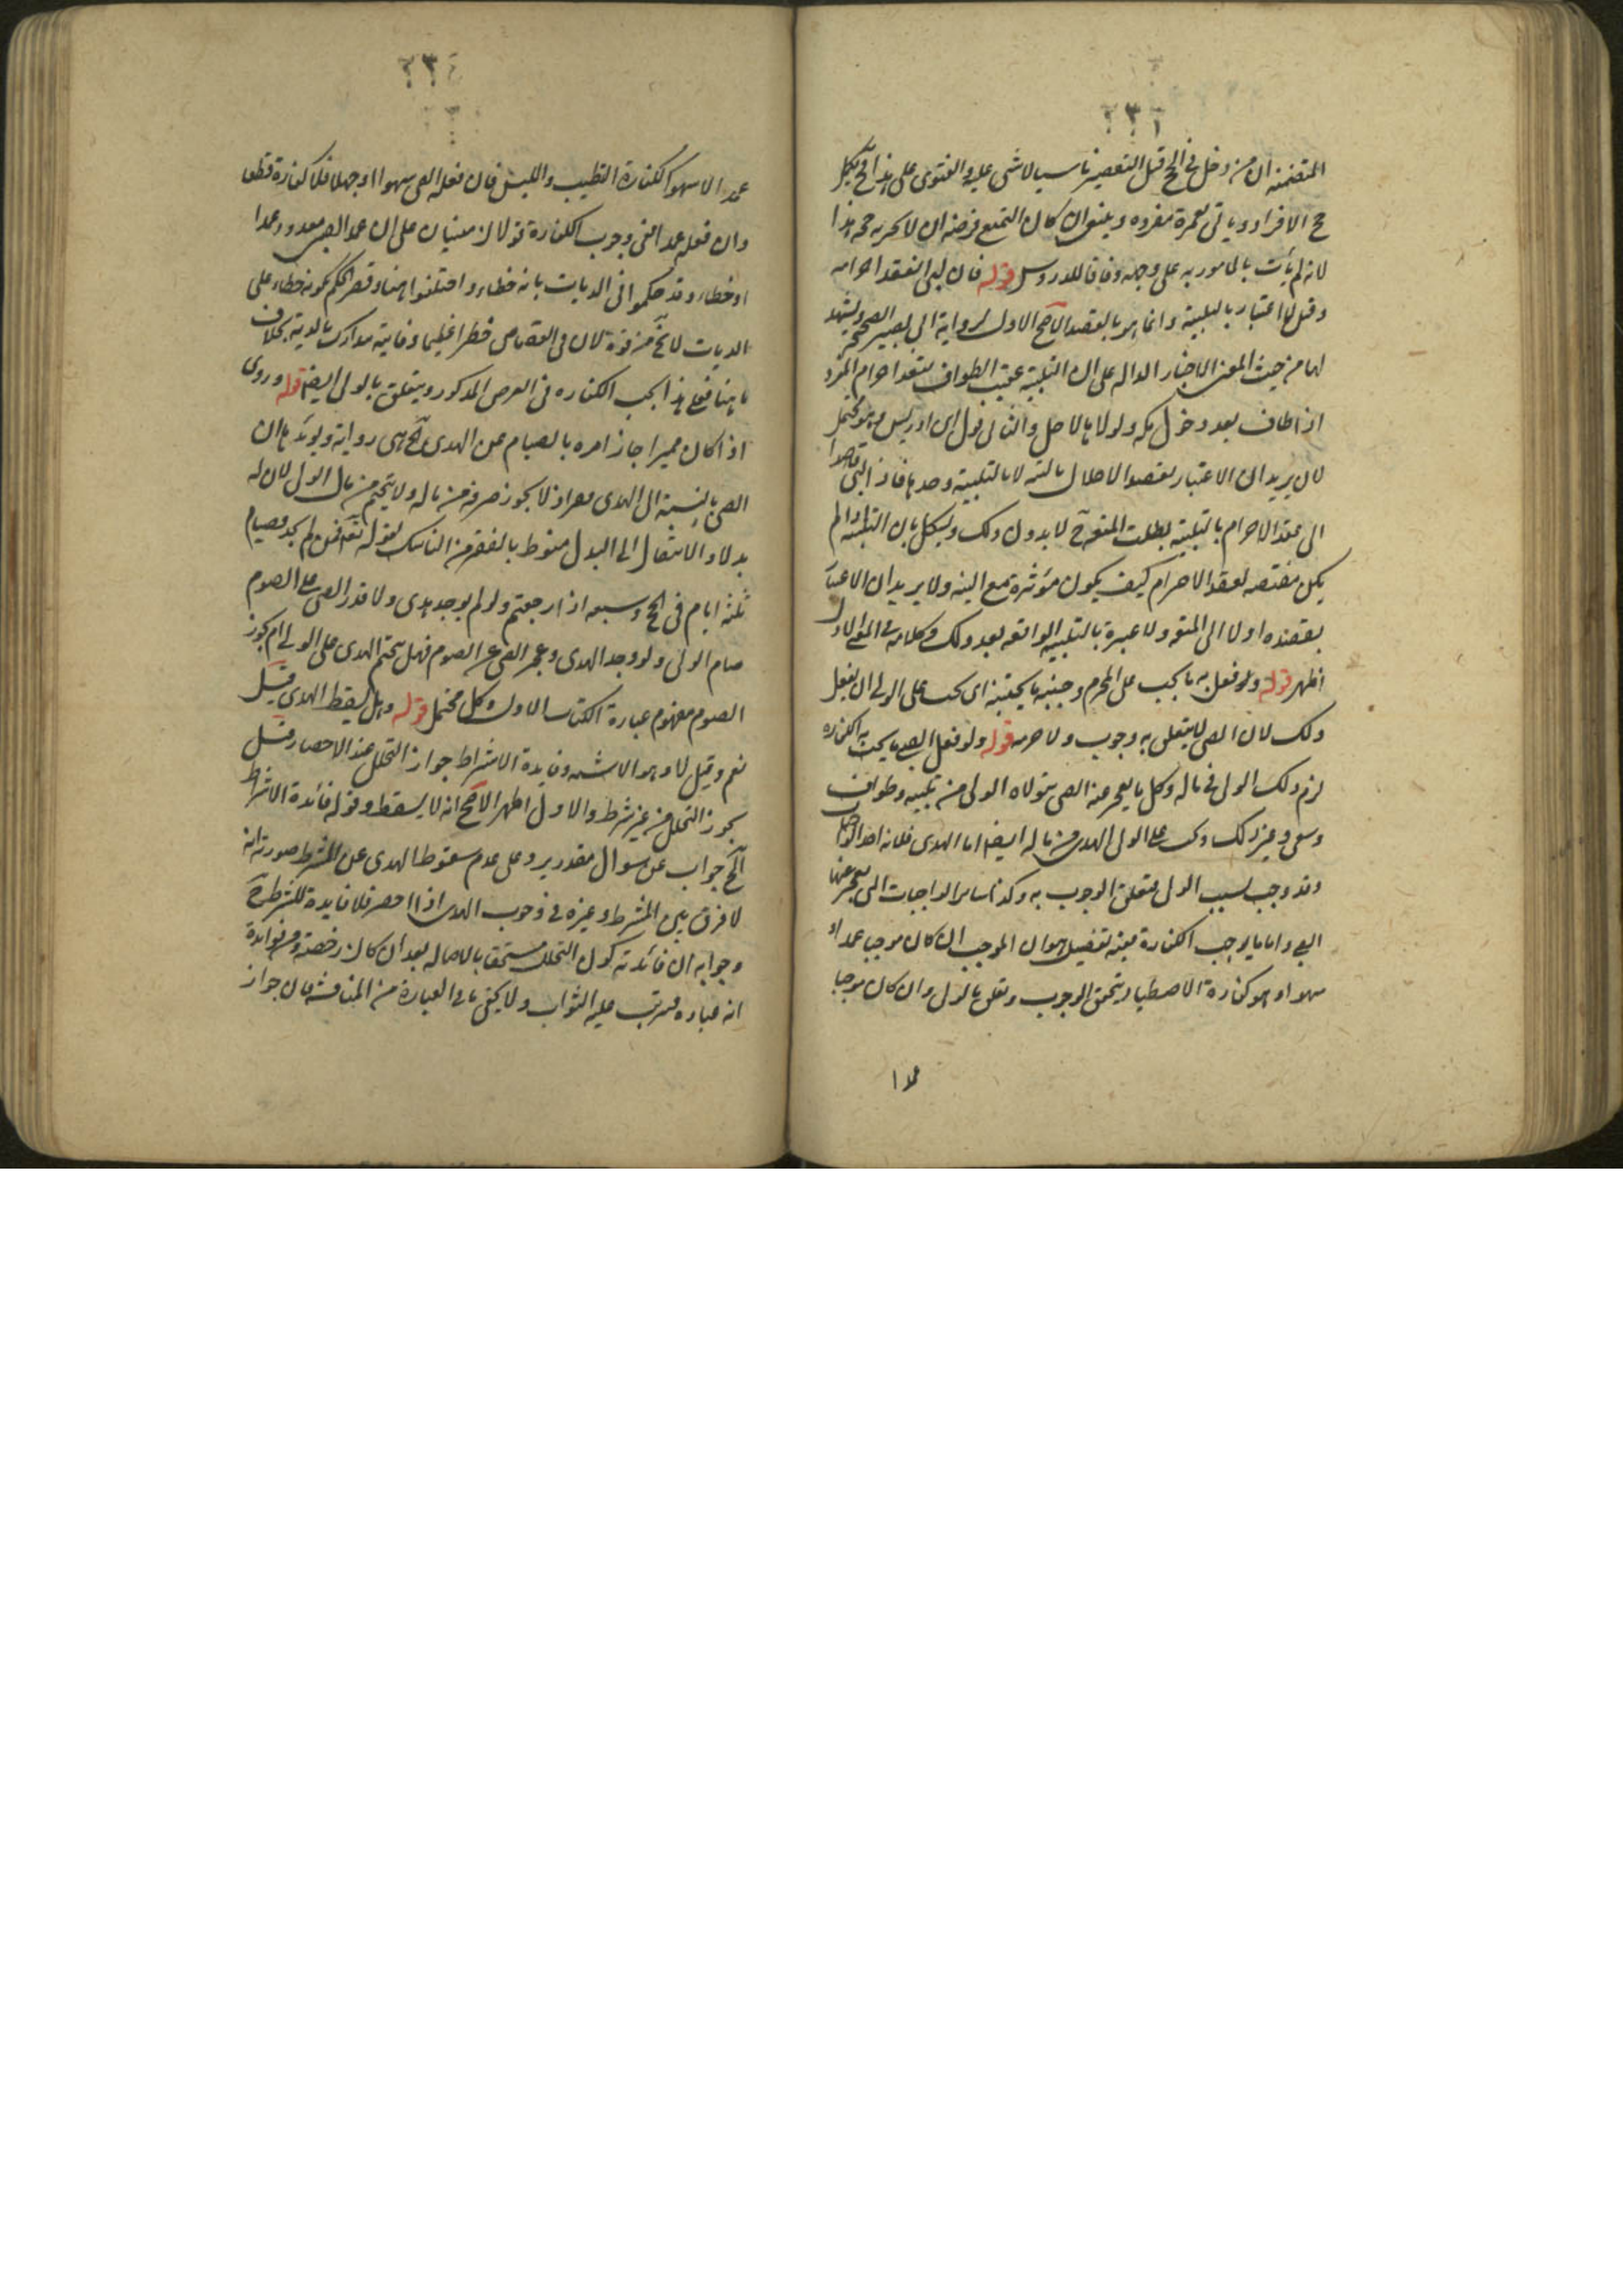 ٢٣٦
المتضمنه ان من دخل في الحج قبل التقصير ناسيا لا شي عليه والفتوى على هذا فيكمل
حج الافراد وياتي بعمرة مفرده وينبغي ان كان التمتع فرضه ان لا يجزيه حجه هذا
لانه لم يأت بالمامور به على وجهه وفاقا للدروس قوله فان لبى انعقد احرامه
وقيل لا اعتبار بالتلبية وانما هو بالقصد الاصح الاول لرواية ابي بصير الصحيحة ويشهد
لها من حيث المعنى الاخبار الداله على ان التلبية عقيب الطواف يعقد احرام المفرد
اذا طاف بعد دخول مكه ولولاها لاحل والثاني قول ابن ادريس وهو محتمل
لان يريد ان الاعتبار بقصد الاحلال بالنيه لا بالتلبية وحدها فاذا لبى قاصدا
الى عقد الاحرام بالتلبية بطلت المتعه ح لا بدون ذلك ويشكل بان التلبيه اذا لم
يكن مقتضيه لعقد الاحرام كيف يكون مؤثرة مع النيه ولا يريد ان الاعتبار
بقصده اولا الى المتعه ولا عبرة بالتلبيه الواقعه بعد ذلك وكلامه في المعنى الاول
اظهر قوله ولو فعل به ما يجب على المحرم وجنبه ما يجتنبه اى يجب على الولي ان يفعل
ذلك لان الصبي لا يتعلق به وجوب ولا حرمه قوله ولو فعل الصبي ما يجب به الكفاره
لزم ذلك الولي في ماله وكل ما يعجز عنه الصبي يتولاه الولى من تلبيه وطواف
وسعي وغير ذلك ويجب على الولي الهدى من ماله ايضا اما الهدى فلانه احد الواجبات
وقد وجب بسبب الولي فتعلق الوجوب به وكذا ساير الواجبات التى يعجز عنها
الصبي واما ما يوجب الكفارة ففيه تفصيل هو ان الموجب ان كان موجبا عمدا و
سهوا وهو كفارة الاصطياد يتحقق الوجوب وتعلق بالولي وان كان موجبا
عمدا
٢٣٤
عمدا لا سهوا ككفارة التطيب واللبس فان فعله الصبي سهوا او جهلا فلا كفارة قطعا
وان فعله عمدا ففي وجوب الكفارة قولان مبنيان على ان عمد الصبي معدود عمدا
او خطاء وقد حكموا في الديات بانه خطاء واختلفوا هنا وقصر الحكم بكونه خطاء على
الديات لا يخ من قوة لان في القصاص خطرا عظيما وفايته مدارك بالدية بخلاف
ما هنا فعلى هذا يجب الكفاره في الفرض المذكور ويتعلق بالولي ايضا قوله وروى
اذا كان مميزا جاز امره بالصيام عن الهدى الخ هي رواية ويؤيدها ان
الصبي بالنسبة الى الهدى معسر اذ لا يجوز صرفه من ماله ولا يتحتم من مال الولي لان له
بدلا والانتقال الى البدل منوط بالفقر من الناسك لقوله تعالى فمن لم يجد فصيام
ثلثه ايام في الحج وسبعه اذا رجعتم ولو لم يوجد هدى ولا قدر الصبي على الصوم
صام الولى ولو وجد الهدى وعجز الصبي عن الصوم فهل يتحتم الهدى على الولي ام يجوز
الصوم مفهوم عبارة الكتاب الاول وكل محتمل قوله وهل يسقط الهدى قيل
نعم وقيل لا وهو الاشبه وفايدة الاشتراط جواز التحلل عند الاحصار وقيل
يجوز التحلل من غير شرط والاول اظهر الاصح انه لا يسقط وقوله فائدة الاشتراط
الخ جواب عن سوال مقدر يرد على عدم سقوط الهدى عن المشترط صورته انه
لا فرق بين المشترط وغيره في وجوب الهدى اذا احصر فلا فايدة للشرط ح
وجوابه ان فائدته كون التحلل مستحقا بالاصاله بعد ان كان رخصة ومن فوائده
انه عباده فترتب عليه الثواب ولا يخفى ما في العبارة من المناقشه فان جواز